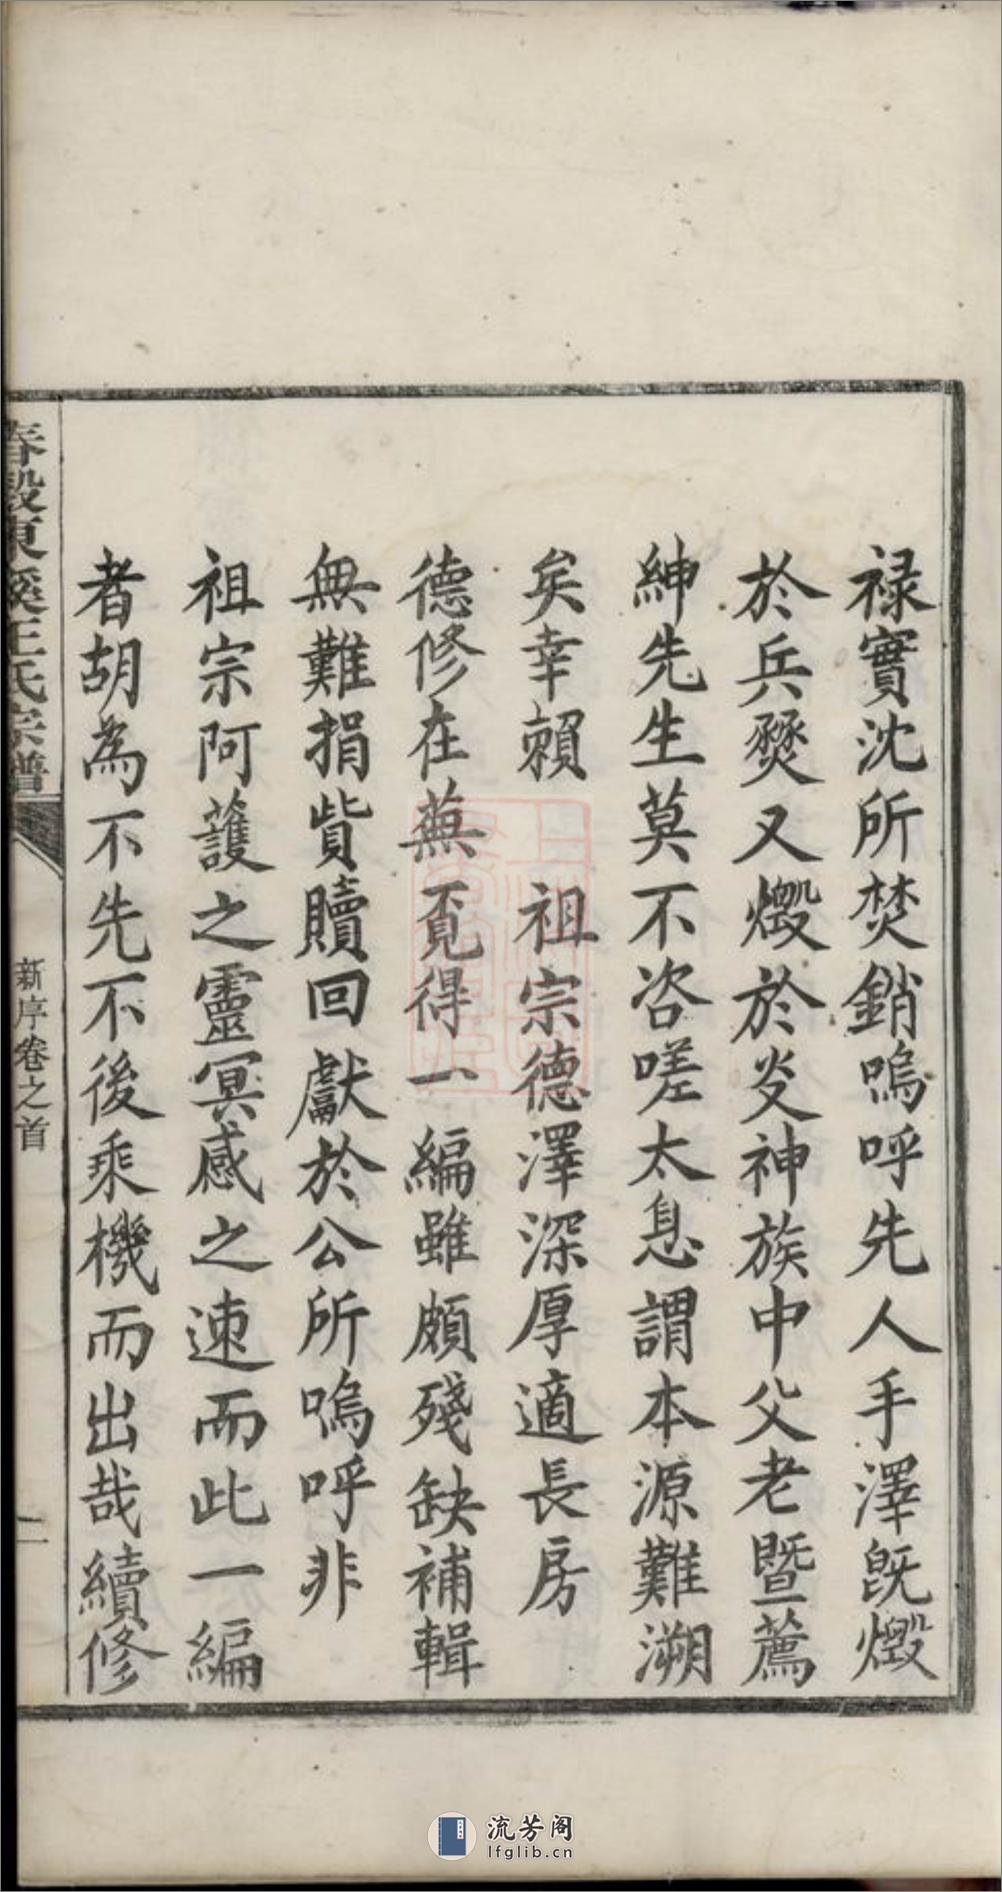 禄實沈所焚銷嗚呼先人手澤既燬
於兵燹又燬於炎神族中父老暨薦
紳先生莫不咨嗟太息謂本源難溯
矣幸賴　祖宗德澤深厚適長房
德修在蕪覔得一編雖頗殘缺補輯
無難捐貲贖回獻於公所嗚呼非
祖宗阿護之靈冥感之速而此一編
者胡為不先不後乘機而出哉續修
春穀東溪王氏宗譜
新序卷之首
二
流芳阁
lfglib.cn